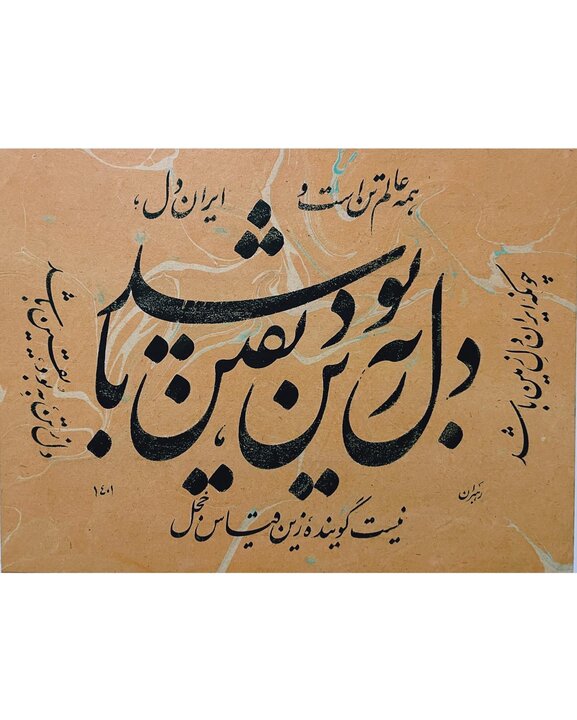 همه عالم تن است و ایران دل؛
نیست گویندهٔ زین قیاس خجل
چونکه ایران دل زمین باشد
دل ز تن به بود، یقین باشد
دل ز تن به بود، یقین باشد
رهبران
۱۴۰۱